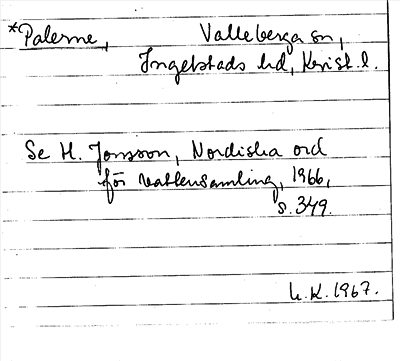 *Palerne, Valleberga sn,
Ingelstads hd, Krist. l.
Se H. Jonsson, Nordiska ord
för vattensamling, 1966,
s. 349.
L.K. 1967.